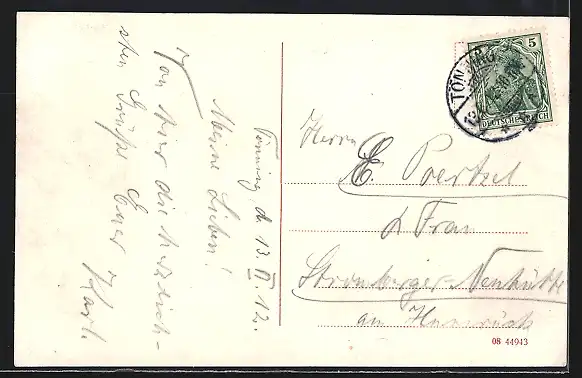 Tönning, d. 13. VI. 12.
Meine Lieben!
Von hier die herzlich-
sten Grüße Euer
Karl.
TÖNNING
5
DEUTSCHES REICH
Herrn
E. Poertzel
& Frau
Stromberger-Neuhütte
am Hunsrück
08 44943